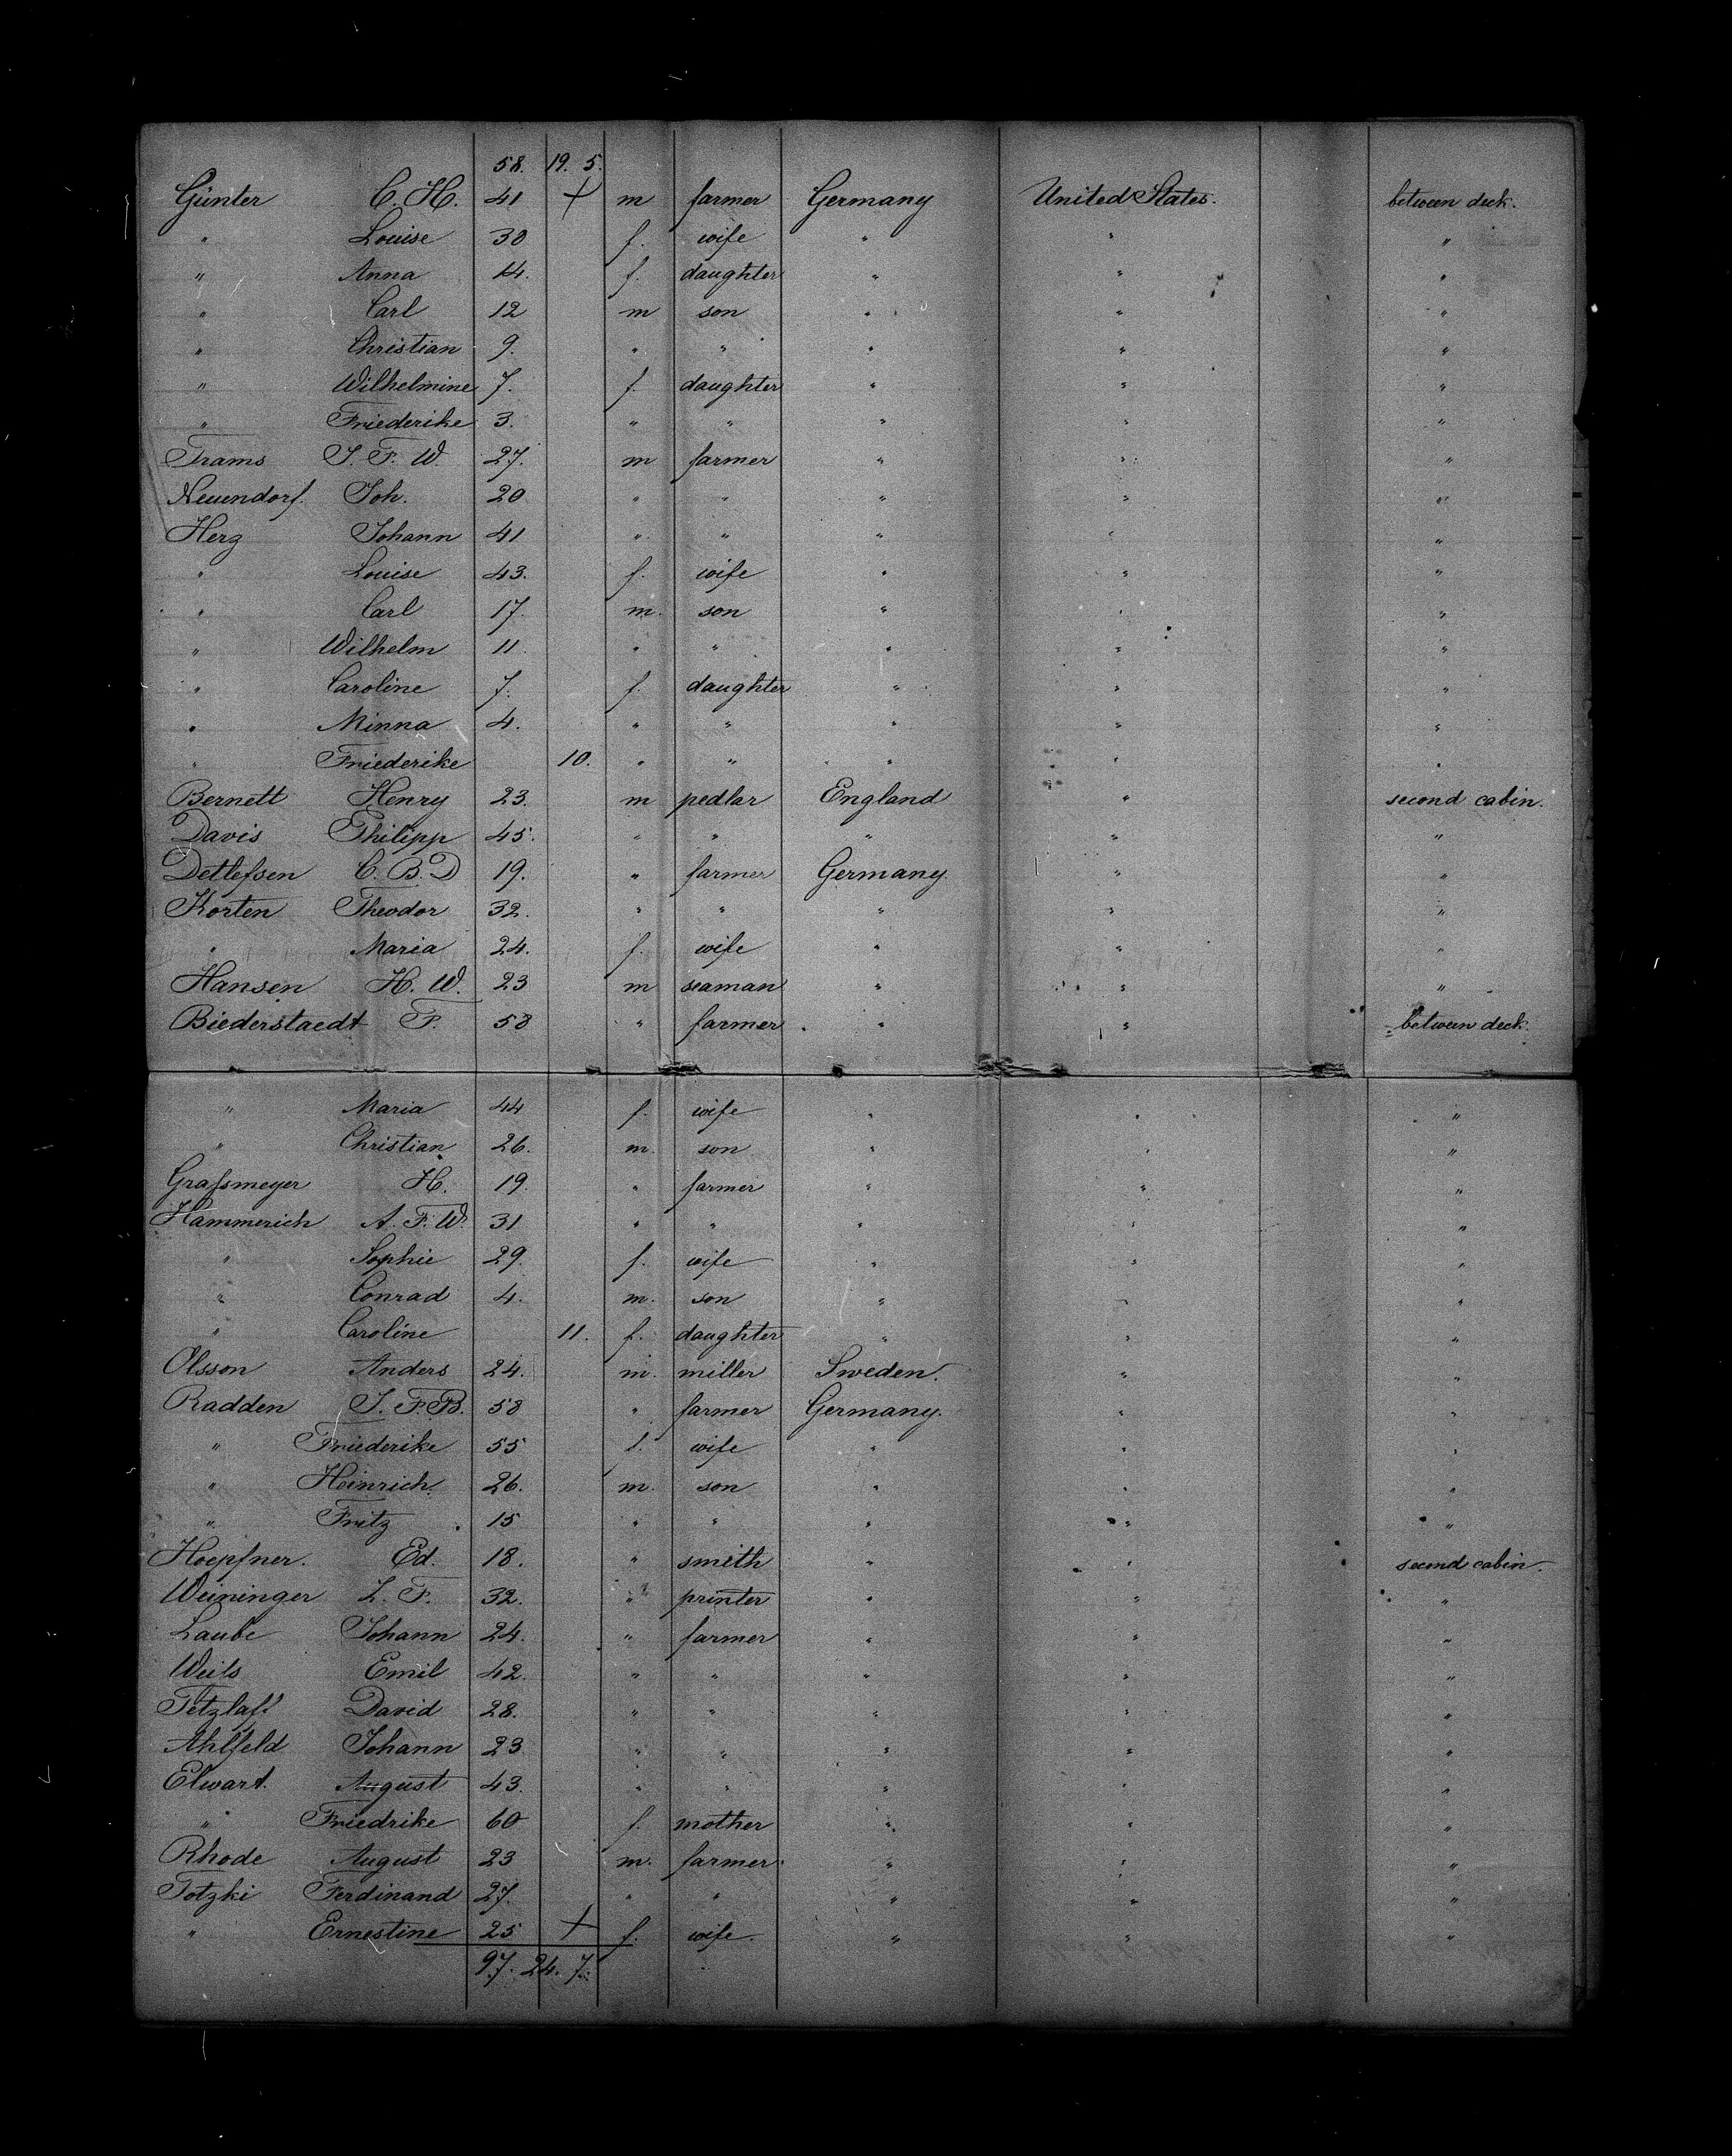 58. 19. 5.
Günter C. H. 41 + m farmer Germany United States. between deck.
" Louise 30 f. wife " " "
" Anna 14. f. daughter " " "
" Carl 12 m son " " "
" Christian 9. " " " " "
" Wilhelmine 7. f. daughter " " "
" Friederike 3. " " " " "
Trams J. F. W. 27. m farmer " " "
Neuendorf. Joh. 20 " " " " "
Herz Johann 41 " " " " "
" Louise 43. f. wife " " "
" Carl 17. m. son " " "
" Wilhelm 11. " " " " "
" Caroline 7. f. daughter " " "
" Minna 4. " " " " "
" Friederike 10. " " " " "
Bernett Henry 23. m pedlar England " second cabin.
Davis Philipp 45. " " " " "
Detlefsen C. B. D 19. " farmer Germany. " "
Korten Theodor 32. " " " " "
" Maria 24. f. wife " " "
Hansen H. W. 23 m seaman " " "
Biederstaedt F. 58 " farmer. " " between deck.
" Maria 44 f. wife " " "
" Christian 26. m. son " " "
Grafsmeyer H. 19. " farmer " " "
Hammerich A. F. W. 31 " " " " "
" Sophie 29. f. wife " " "
" Conrad 4. m. son " " "
" Caroline 11. f. daughter " " "
Olsson Anders 24. m. miller Sweden. " "
Radden J. F. B. 58 " farmer Germany. " "
" Friederike 55 f. wife " " "
" Heinrich. 26. m. son " " "
" Fritz 15 " " " " "
Hoepfner. Ed. 18. " smith " " second cabin.
Weininger L. F. 32. " printer " " "
Laube Johann 24. " farmer " " "
Weils Emil 42. " " " " "
Tetzlaff David 28. " " " " "
Ahlfeld Johann 23 " " " " "
Elwart. August 43. " " " " "
" Friedrike 60 f. mother " " "
Rhode August 23 m. farmer. " " "
Totzki Ferdinand 27. " " " " "
" Ernestine 25 + f. wife. " " "
97. 24. 7.